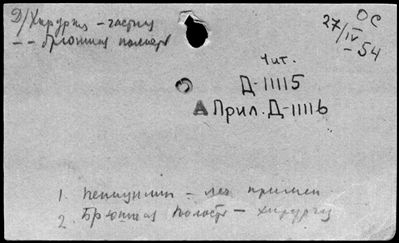 Д/Хирургия - частная
-- - брюшная полость
ОС
27/IV - 54
Чит.
Д-11115
А Прил. Д-11116
1. Пенициллин - леч. примен.
2. Брюшная полость - хирургия